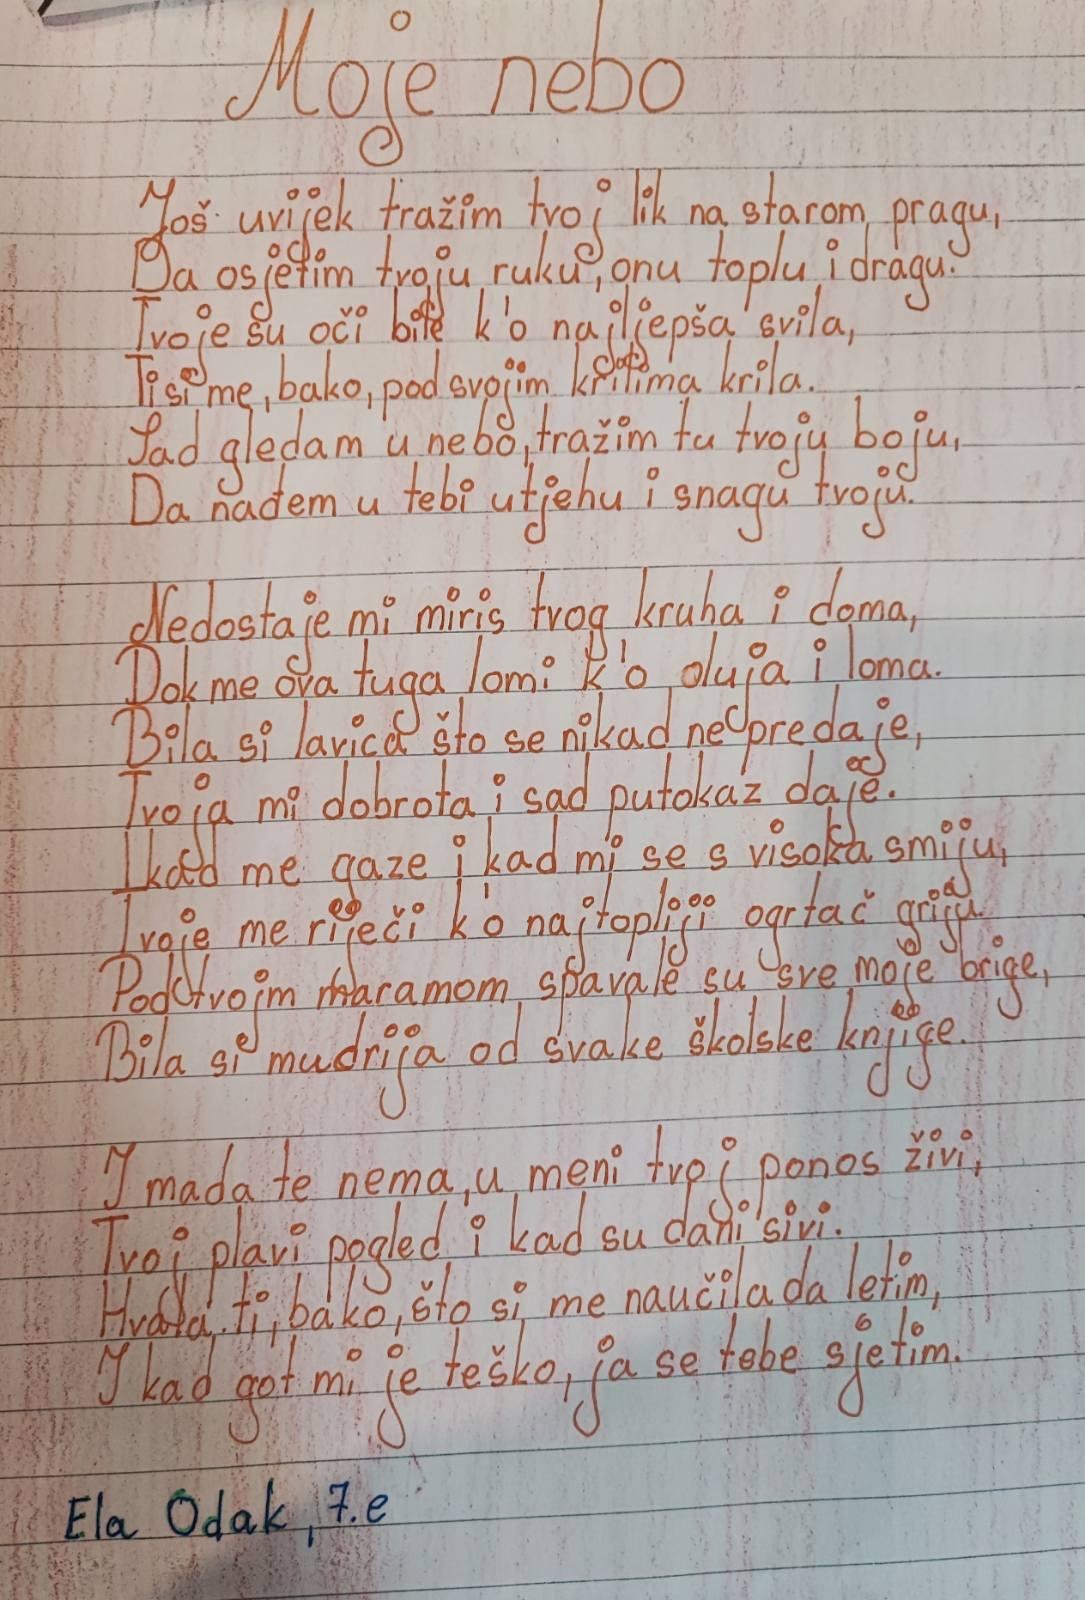 Moje nebo
Još uvijek tražim tvoj lik na starom pragu,
Da osjetim tvoju ruku, onu toplu i dragu.
Tvoje su oči bile k'o najljepša svila,
Ti si me, bako, pod svojim krilima krila.
Sad gledam u nebo, tražim tu tvoju boju,
Da nađem u tebi utjehu i snagu tvoju.
Nedostaje mi miris tvog kruha i doma,
Dok me ova tuga lomi k'o oluja i loma.
Bila si lavica što se nikad ne predaje,
Tvoja mi dobrota i sad putokaz daje.
I kad me gaze i kad mi se s visoka smiju,
Tvoje me riječi k'o najtopliji ogrtač griju.
Pod tvojm maramom spavale su sve moje brige,
Bila si mudrija od svake školske knjige.
I mada te nema, u meni tvoj ponos živi,
Tvoj plavi pogled i kad su dani sivi.
Hvala ti, bako, što si me naučila da letim,
I kad got mi je teško, ja se tebe sjetim.
Ela Odak, 7.e